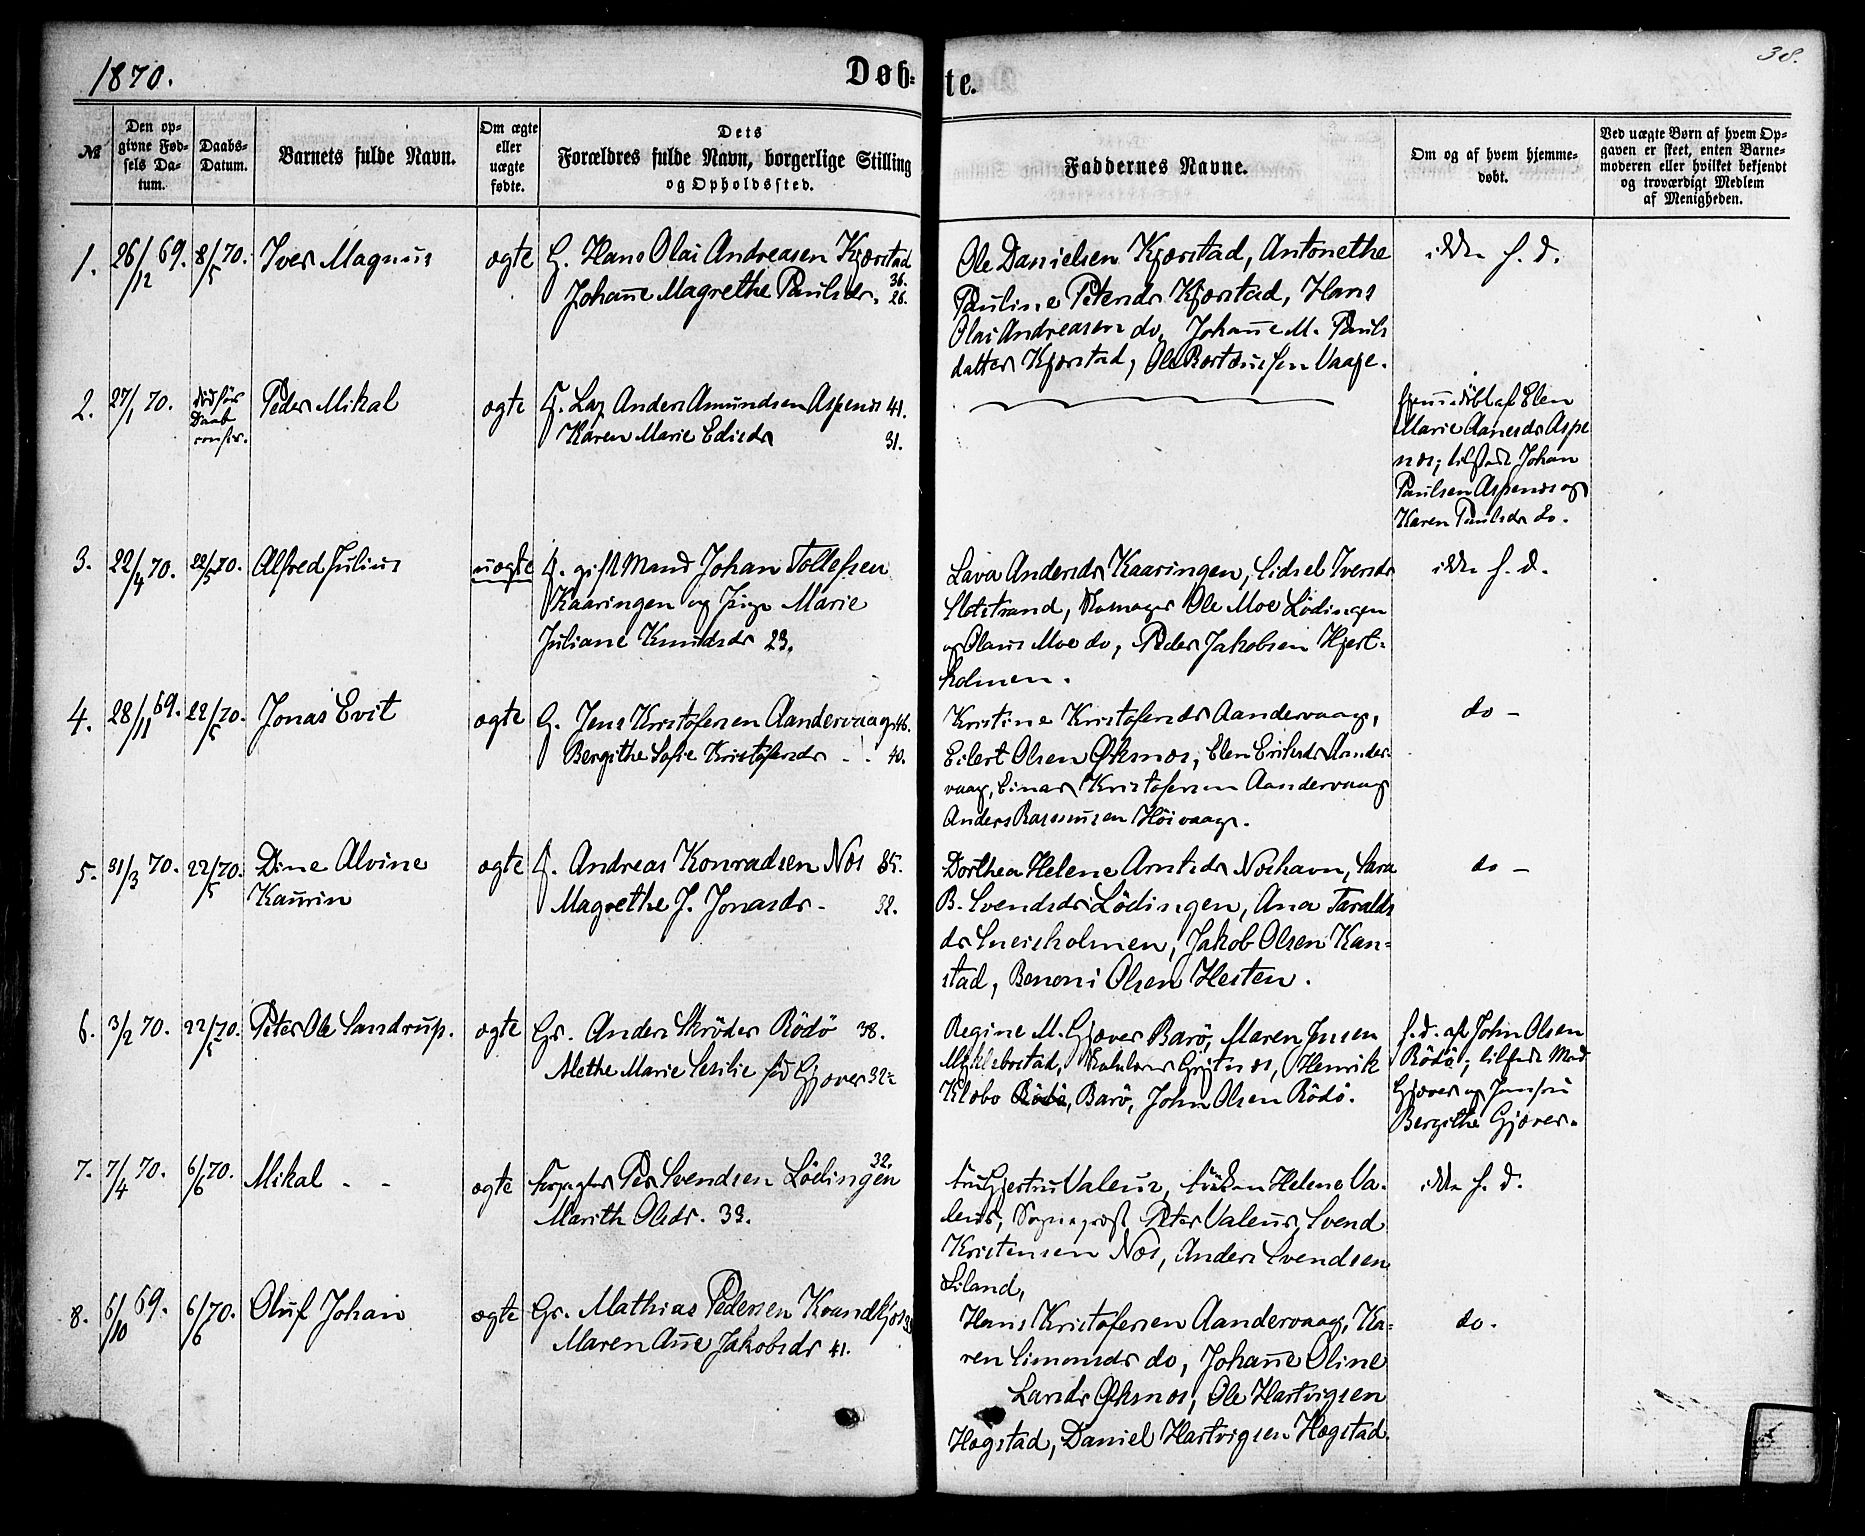 1870.
Døb-
te.
38.
№
Den op-
givne Fød-
sels Da-
tum.
Daabs-
Datum.
Barnets fulde Navn.
Om ægte
eller
uægte
fødte.
Dets
Forældres fulde Navn, borgerlige Stilling
og Opholdssted.
Faddernes Navne.
Om og af hvem hjemme-
døbt.
Ved uægte Børn af hvem Op-
gaven er skeet, enten Barne-
moderen eller hvilket bekjendt
og troværdigt Medlem
af Menigheden.
1. 26/12 69. 8/5 70. Iver Magnus ægte G. Hans Olai Andreasen Kjærstad 36.
Johan̅e Magrethe Paulsdr. 26.
Ole Danielsen Kjærstad, Antonethe
Pauline Petersdr Kjærstad, Hans
Olai Andreasen do, Johan̅e M. Pauls
datter Kjærstad, Ole Vaaje.
ikke h. d.
2. 27/1 70. død før
Daab
Peder Mikal ægte Anders Amundsen Aspenæs 41.
Karen Marie Edisdr 31.
hjem̅edøbt af Elen
Marie Aanesdr Aspe
næs; tilstede Johan
Paulsen Aspenæs og
Karen Paulsdr do.
3. 22/4 70. 22/5 70. Alfred Julius uægte gift Mand Johan Tollefsen
Kaaringen og Pige Marie
Juliane Knudsdr 23.
Lava Andersdr Kaaringen, Sidsel Iversdr
Slotstrand, Ole Moe Lödingen
og Olaus Moe do, Peder Jakobsen Hjert-
holmen.
ikke h. d.
4. 28/11 69. 22/5 70. Jonas Evit ægte G. Jens Kristofersen Aandervaag 46.
Bergithe Sofie Kristofersdr 40.
Kristine Kristofersdr Aandervaag,
Eilert Olsen Øksnæs, Elen Eriksdr Aander-
vaag, Einar Kristofersen Aandervaag
Anders Rasmusen Höivaag.
do -
5. 31/3 70. 22/5 70. Dine Alvine
Kaurin
ægte Andreas Konradsen Næs 35.
Magrethe J. Jonasdr - 32.
Dorthea Helene Arntsdr Næshavn, Sara
B. Svendsdr Lödingen, Ana Taralds
dr Sneisholmen, Jakob Olsen Kan-
stad, Benoni Olsen Hesten.
do -
6. 3/2 70. 22/5 70. Peter Ole Sandrup. ægte Gr. Anders Skröder Rödö 38.
Methe Marie Sesilie fød Gjæver 32
Regine M. Gjæver Barö, Maren Jensen
Myklebostad, Henrik
Klæbo Rödö, Barö, John Olsen Rödö.
h. d. af John Olsen
Rödö; tilstede Mad.
Gjæver og Jomfru
Bergithe Gjæver.
7. 7/4 70. 6/6 70. Mikal - - ægte Forpagter Per Svendsen Lödingen 32.
Marith Olsdr. 33.
Fru Gjertru Valeur, Fröken Helene Va-
leur, Sogneprest Peter Valeur, Svend
Kristensen Næs, Anders Svendsen
Liland,
ikke h. d.
8. 6/10 69. 6/6 70. Oluf Johan ægte Gr. Mathias Pedersen Kvandkjos 38
Maren An̅e Jakobsdr 41.
Hans Kristofersen Aandervaag, Ka-
ren Simonsdr do, Johan̅e Oline
Larsdr Øksnæs, Ole Hartvigsen
Hægstad, Daniel Hartvigsen Hægstad.
do.